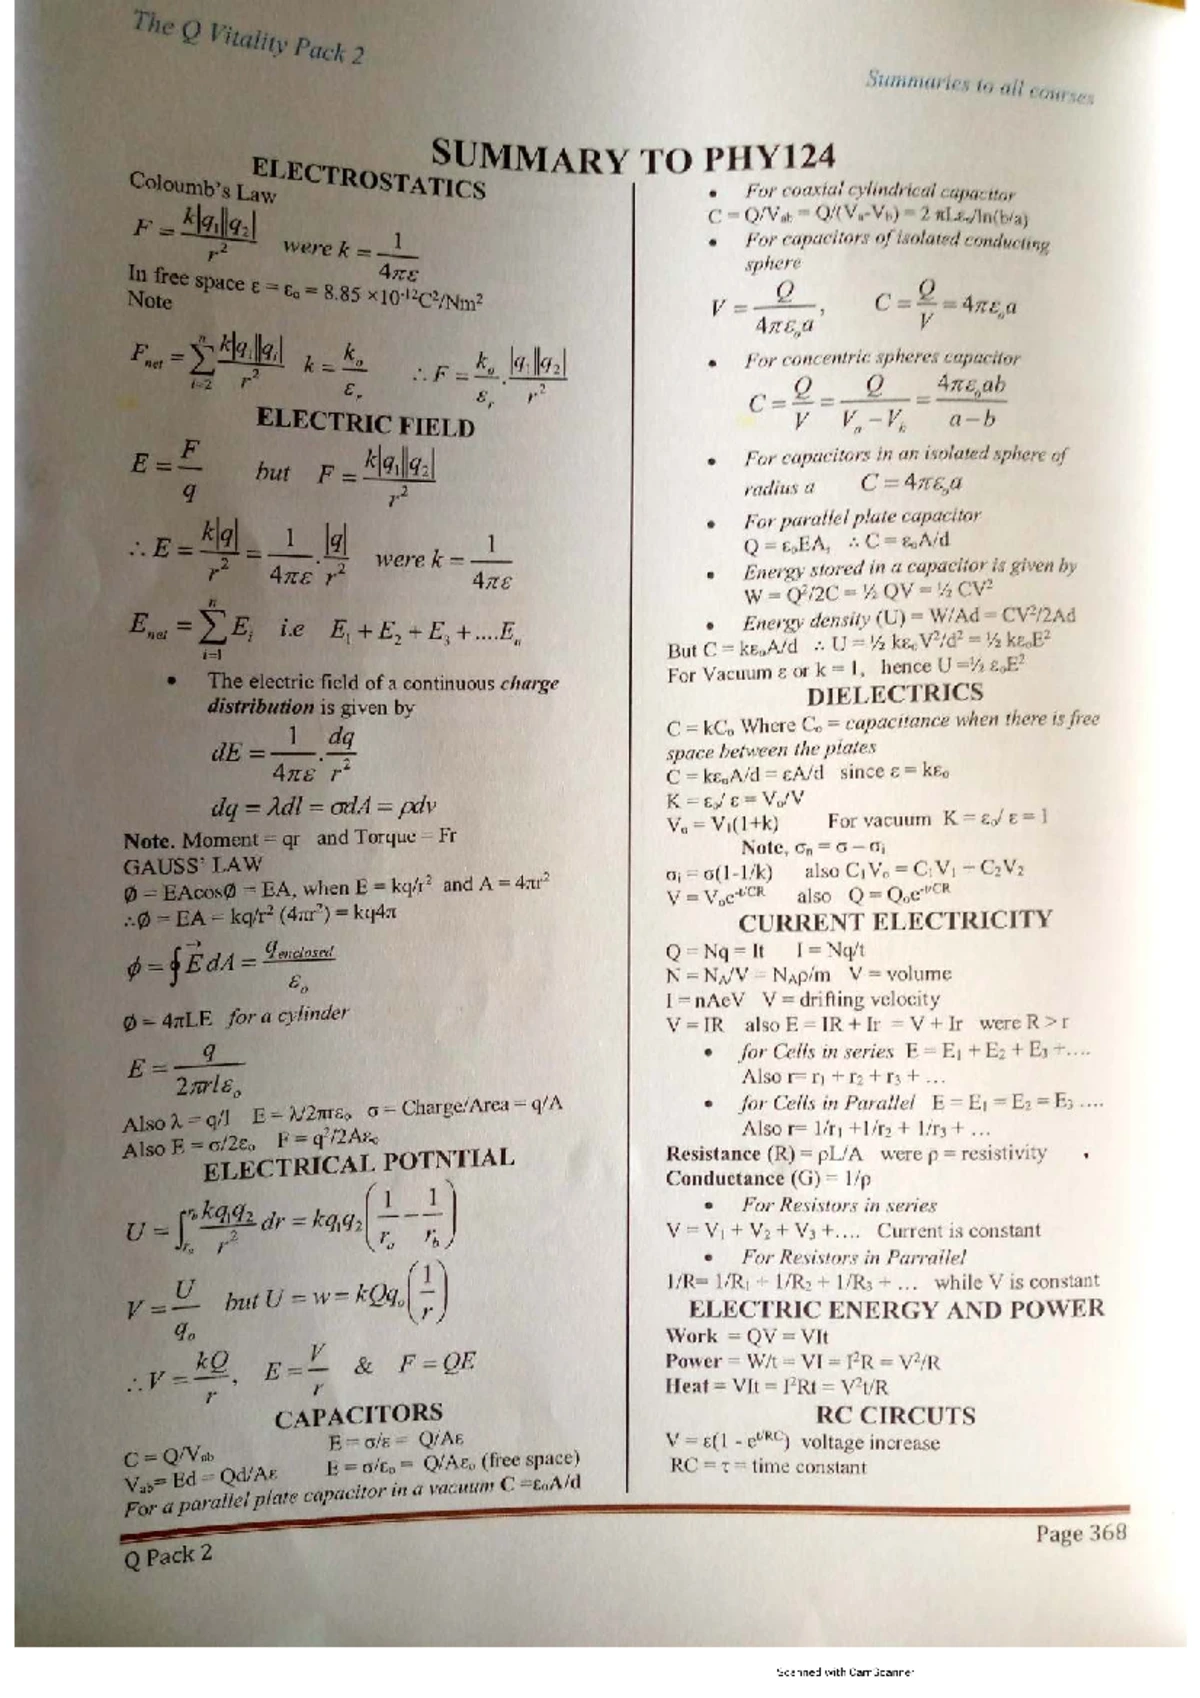 The Q Vitality Pack 2
Summaries to all courses
SUMMARY TO PHY124
ELECTROSTATICS
Coloumb's Law
F = k|q₁||q₂| / r² were k = 1 / 4πε
In free space ε = εₒ = 8.85 ×10⁻¹²C²/Nm²
Note
Fₙₑₜ = Σⁿᵢ₌₂ k|q₁||qᵢ| / r² k = kₒ / εᵣ ∴ F = kₒ / εᵣ . |q₁||q₂| / r²
ELECTRIC FIELD
E = F / q but F = k|q₁||q₂| / r²
∴ E = k|q| / r² = 1 / 4πε . |q| / r² were k = 1 / 4πε
Eₙₑₜ = Σⁿᵢ₌₁ Eᵢ i.e E₁ + E₂ + E₃ + ....Eₙ
• The electric field of a continuous charge
distribution is given by
dE = 1 / 4πε . dq / r²
dq = λdl = σdA = ρdv
Note. Moment = qr and Torque = Fr
GAUSS' LAW
Ø = EAcosØ = EA, when E = kq/r² and A = 4πr²
∴Ø = EA = kq/r² (4πr²) = kq4π
ϕ = ∮ E⃗ dA = q enclosed / εₒ
Ø = 4πLE for a cylinder
E = q / 2πrlεₒ
Also λ = q/l E = λ/2πrεₒ σ = Charge/Area = q/A
Also E = σ/2εₒ F = q²/2Aεₒ
ELECTRICAL POTNTIAL
U = ∫ kq₁q₂ / r² dr = kq₁q₂ (1 / rₐ − 1 / r_b)
V = U / qₒ but U = w = kQqₒ (1 / r)
∴ V = kQ / r , E = V / r & F = QE
CAPACITORS
C = Q/Vab E = σ/ε = Q/Aε
Vab= Ed = Qd/Aε E = σ/εₒ = Q/Aεₒ (free space)
For a parallel plate capacitor in a vacuum C =εₒA/d
• For coaxial cylindrical capacitor
C = Q/Vab = Q/(Va-Vb) = 2 πLεₒ/ln(b/a)
• For capacitors of isolated conducting
sphere
V = Q / 4πεₒa , C = Q / V = 4πεₒa
• For concentric spheres capacitor
C = Q / V = Q / Vₐ − V_b = 4πεₒab / a − b
• For capacitors in an isolated sphere of
radius a C = 4πεₒa
• For parallel plate capacitor
Q = εₒEA, ∴ C = εₒA/d
• Energy stored in a capacitor is given by
W = Q²/2C = ½ QV = ½ CV²
• Energy density (U) = W/Ad = CV²/2Ad
But C = kεₒA/d ∴ U = ½ kεₒV²/d² = ½ kεₒE²
For Vacuum ε or k = 1, hence U =½ εₒE²
DIELECTRICS
C = kCₒ Where Cₒ = capacitance when there is free
space between the plates
C = kεₒA/d = εA/d since ε = kεₒ
K = εₒ/ ε = Vₒ/V
Vₒ = V₁(1+k) For vacuum K = εₒ/ ε = 1
Note, σₙ = σ – σᵢ
σᵢ = σ(1-1/k) also C₁Vₒ = C₁V₁ – C₂V₂
V = Vₒe⁻ᵗ/CR also Q = Qₒe⁻ᵗ/CR
CURRENT ELECTRICITY
Q = Nq = It I = Nq/t
N = NA/V = NAρ/m V = volume
I = nAeV V = drifting velocity
V = IR also E = IR + Ir = V + Ir were R > r
• for Cells in series E = E₁ + E₂ + E₃ +….
Also r= r₁ + r₂ + r₃ + …
• for Cells in Parallel E = E₁ = E₂ = E₃ ….
Also r= 1/r₁ +1/r₂ + 1/r₃ + …
Resistance (R) = ρL/A were ρ = resistivity
Conductance (G) = 1/ρ
• For Resistors in series
V = V₁ + V₂ + V₃ +…. Current is constant
• For Resistors in Parrallel
1/R= 1/R₁ + 1/R₂ + 1/R₃ + … while V is constant
ELECTRIC ENERGY AND POWER
Work = QV = VIt
Power = W/t = VI = I²R = V²/R
Heat = VIt = I²Rt = V²t/R
RC CIRCUTS
V = ε(1 - eᵗ/RC) voltage increase
RC = τ = time constant
Q Pack 2
Page 368
Scanned with CamScanner